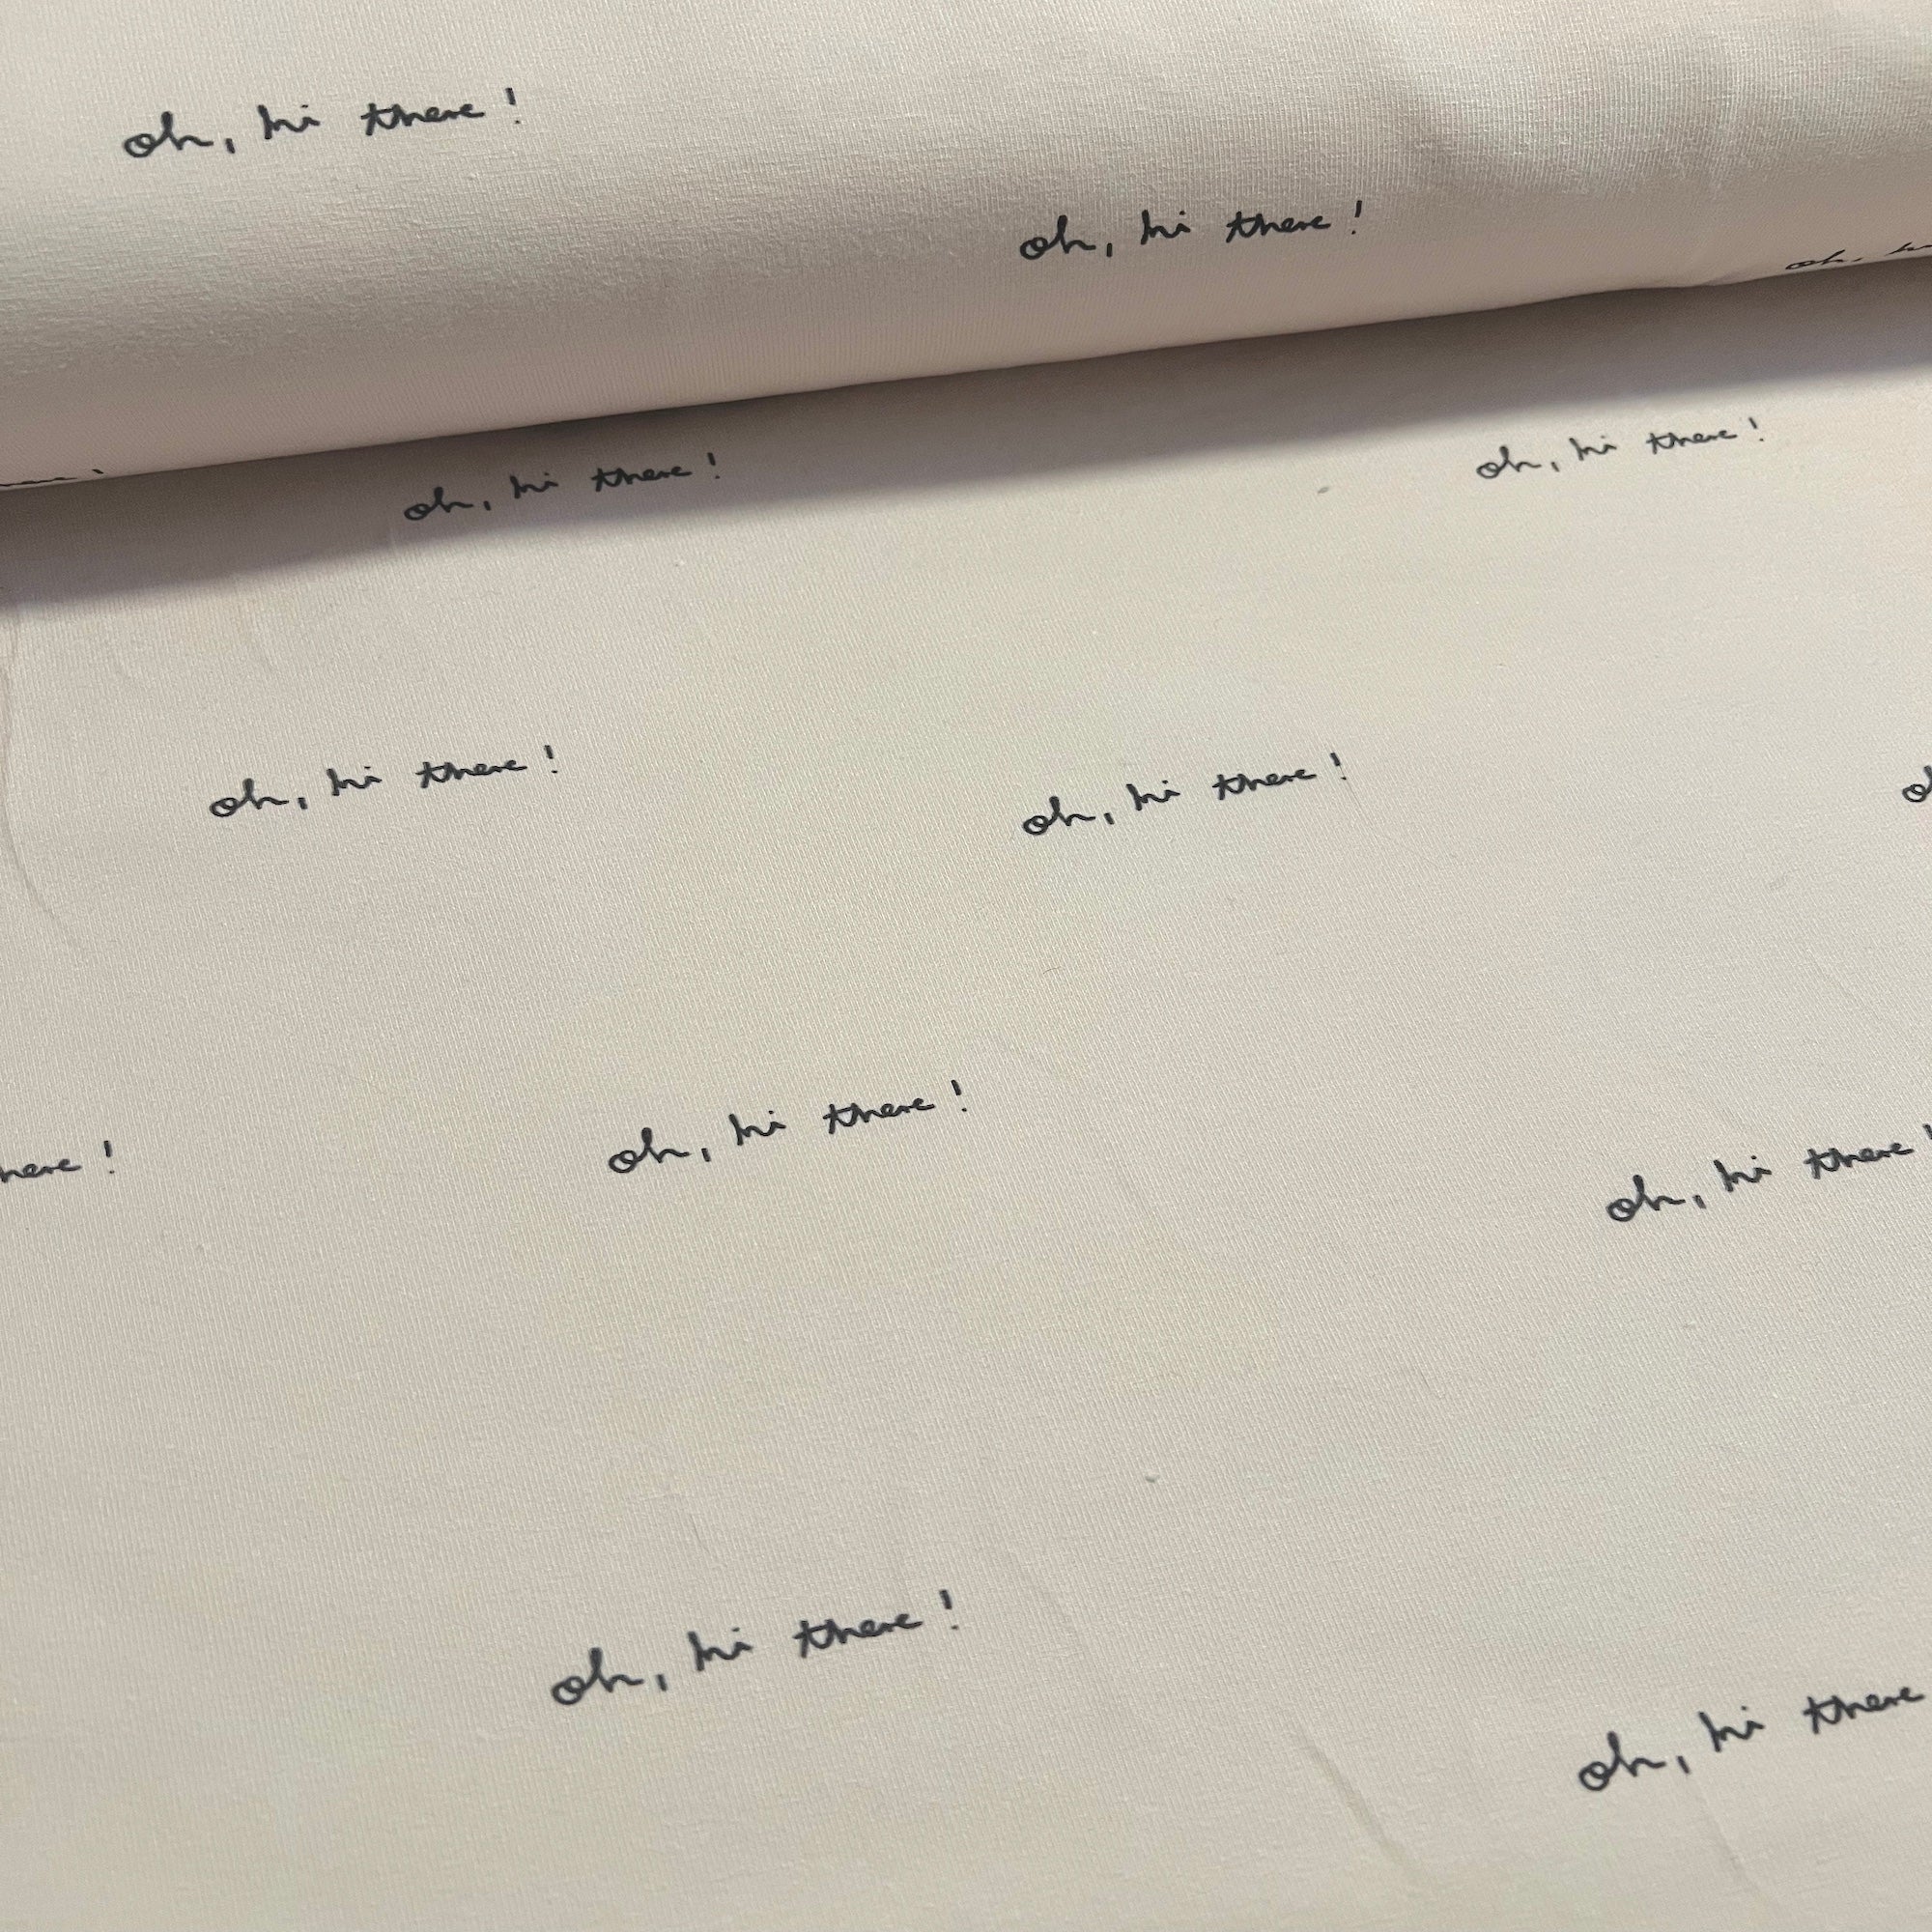 oh, hi there!
oh, hi there!
oh,
oh, hi there!
oh, hi there!
oh, hi there!
oh, hi there!
here!
oh, hi there!
oh, hi there!
oh, hi there!
oh, hi there